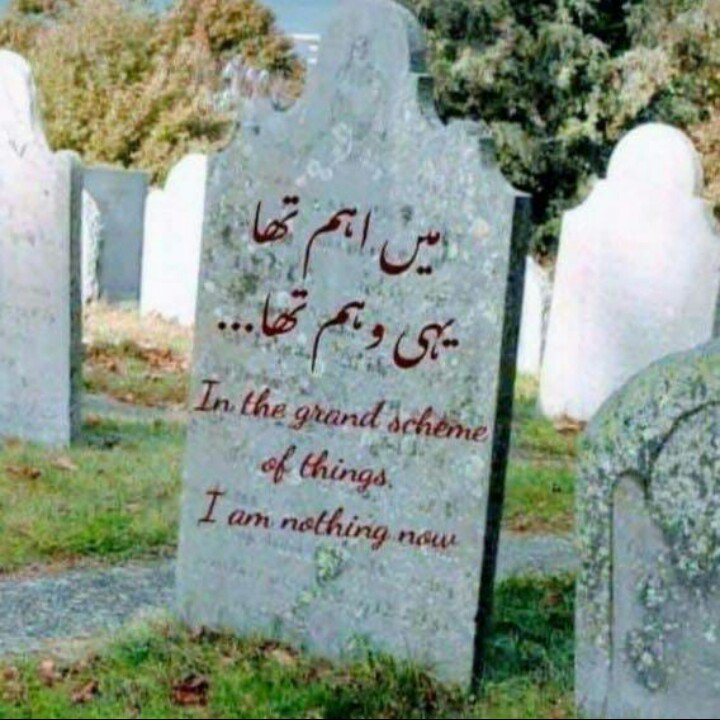 میں اہم تھا
یہی وہم تھا...
In the grand scheme
of things.
I am nothing now